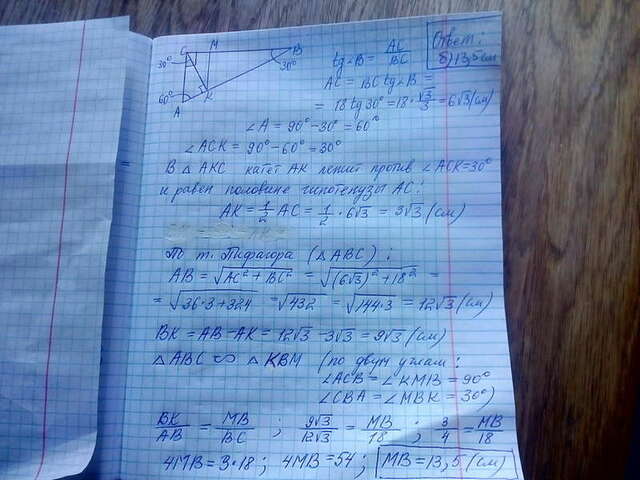 C M B
30° 30°
60°
A K
Ответ:
б) 13,5 см
tg∠B = AC/BC
AC = BC tg∠B =
= 18 tg 30° = 18 · √3/3 = 6√3 (см)
∠A = 90° − 30° = 60°
∠ACK = 90° − 60° = 30°
В △ AKC катет AK лежит против ∠ACK = 30°
и равен половине гипотенузы AC:
AK = 1/2 AC = 1/2 · 6√3 = 3√3 (см)
По т. Пифагора (△ABC):
AB = √(AC² + BC²) = √((6√3)² + 18²) =
= √(36·3+324) = √432 = √(144·3) = 12√3 (см)
BK = AB − AK = 12√3 − 3√3 = 9√3 (см)
△ABC ∽ △KBM (по двум углам:
∠ACB = ∠KMB = 90°
∠CBA = ∠MBK = 30°)
BK/AB = MB/BC ; 9√3/12√3 = MB/18 ; 3/4 = MB/18
4MB = 3·18 ; 4MB = 54 ; MB = 13,5 (см)